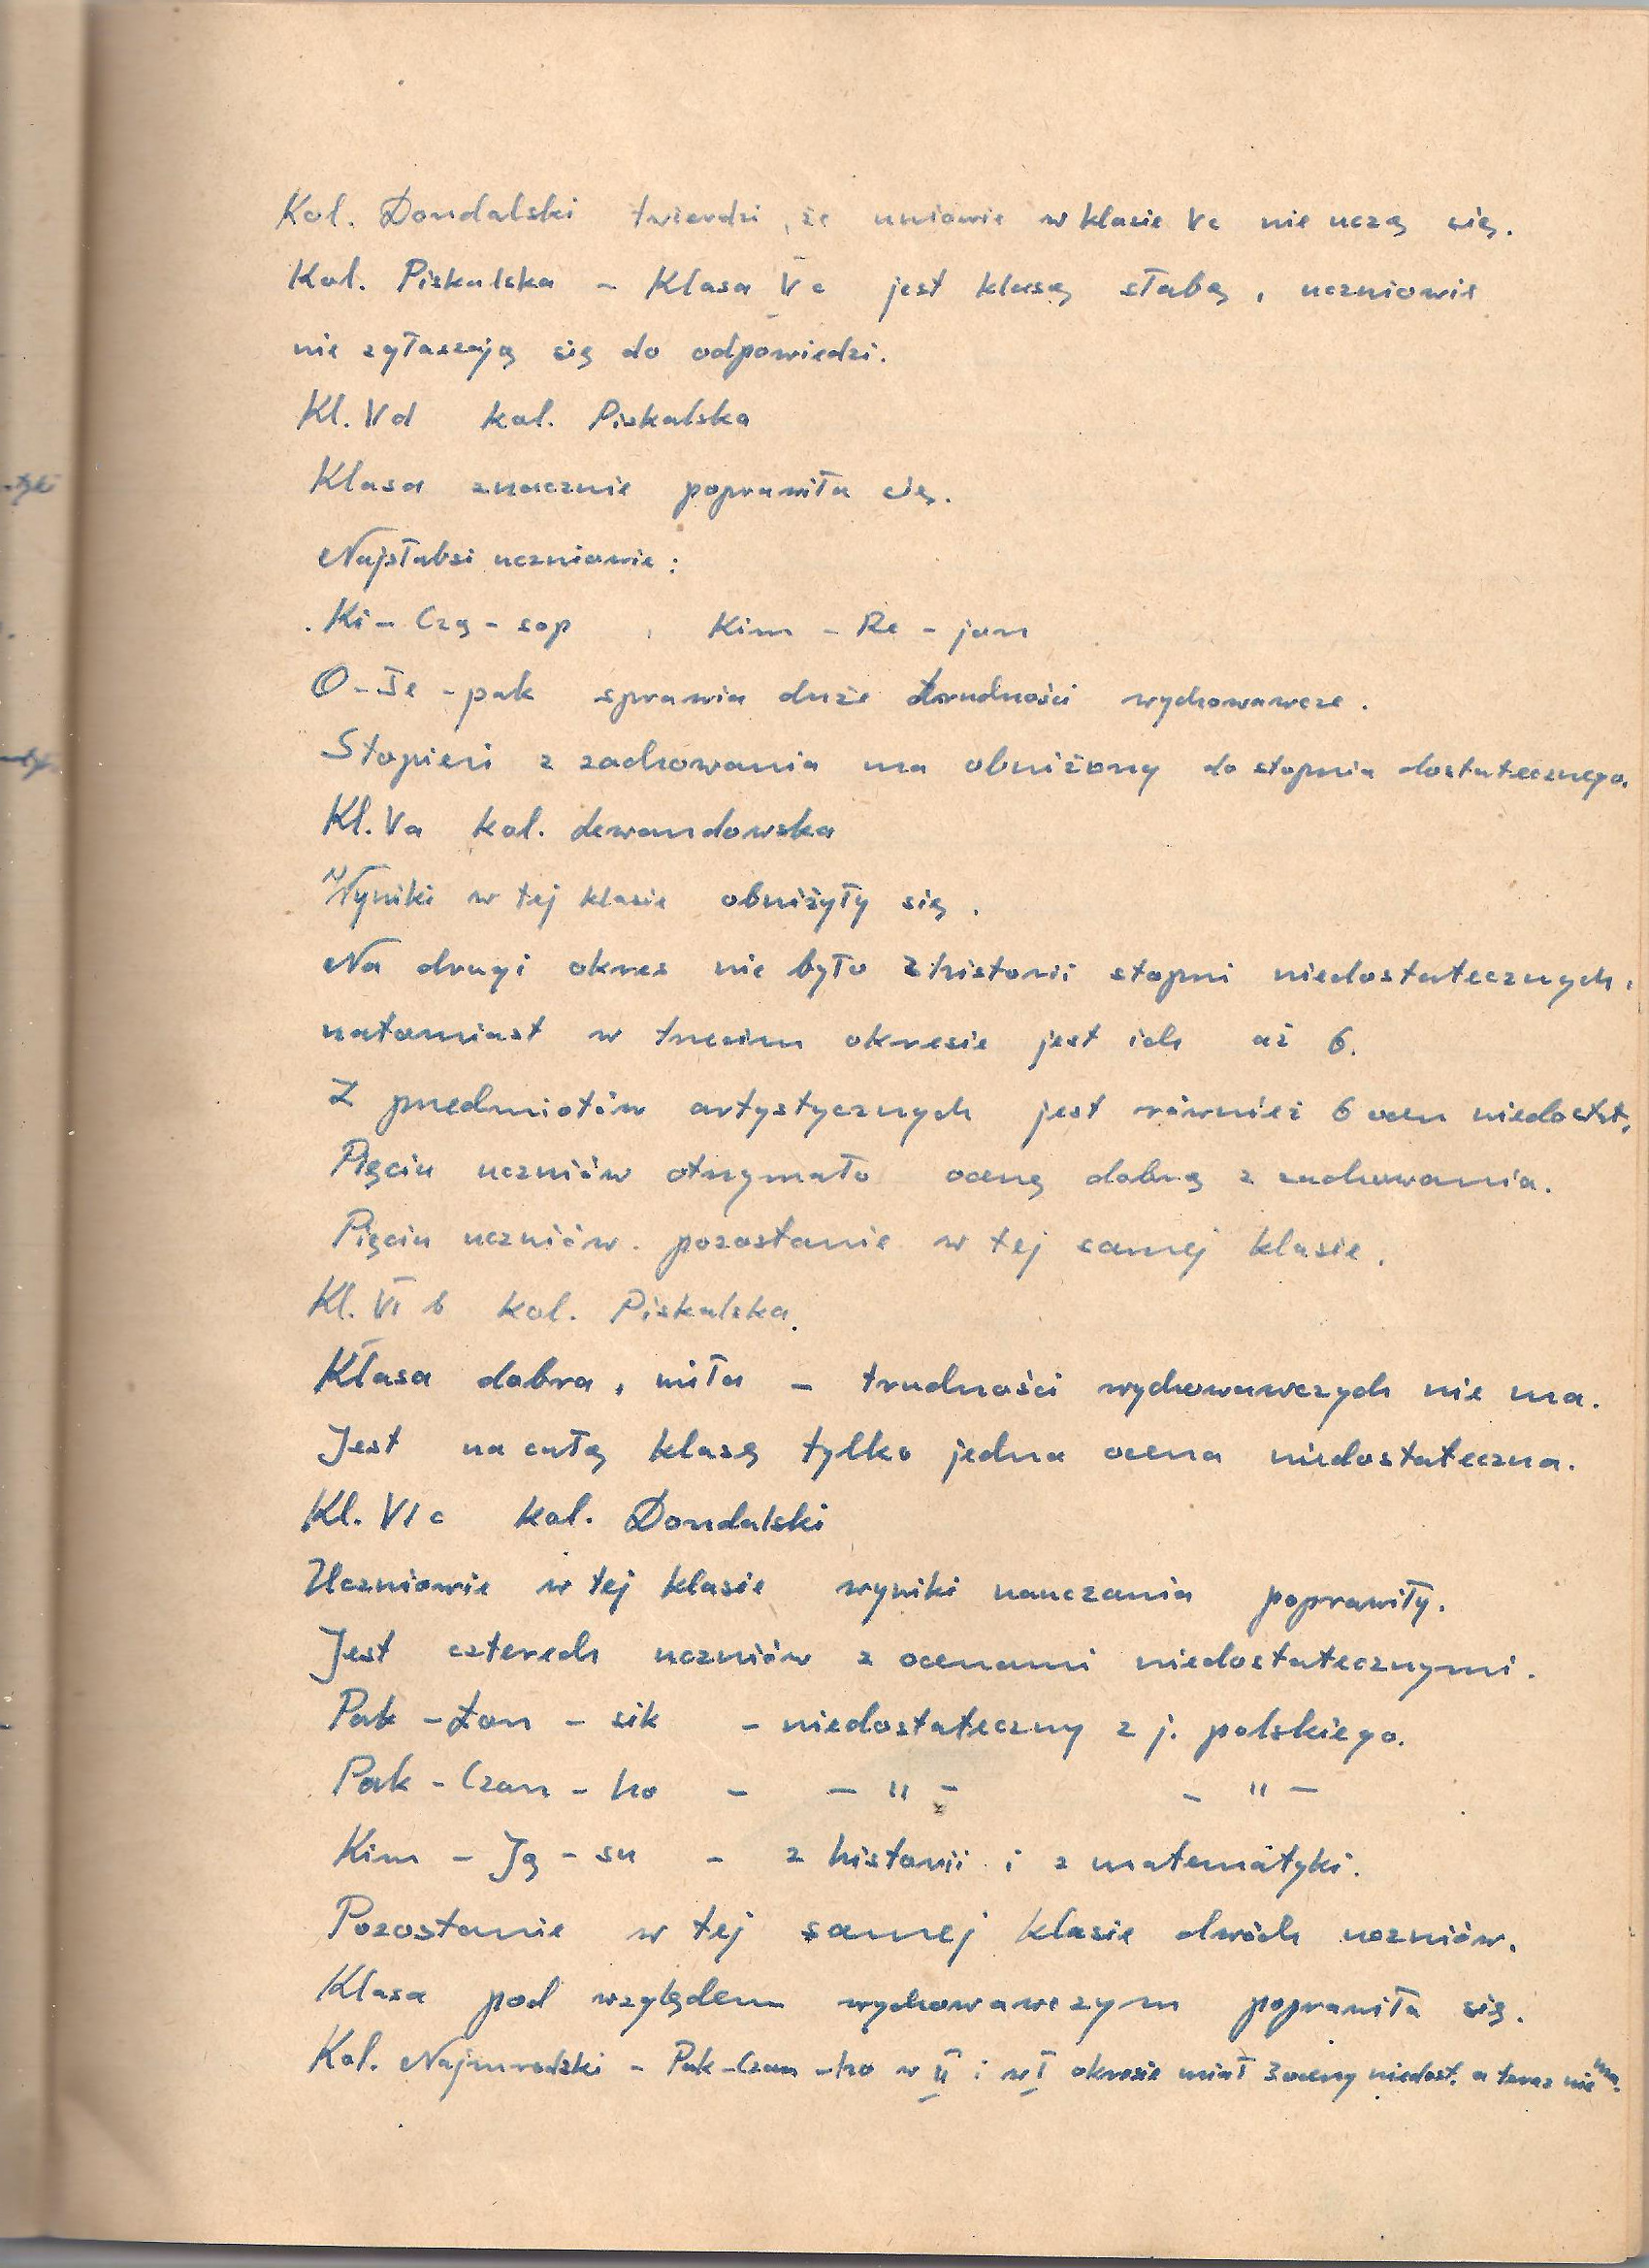 Kol. Dondalski twierdzi, że uczniowie w klasie Vc nie uczą się.
Kol. Piskulska - Klasa Vc jest klasą słabą, uczniowie
nie zgłaszają się do odpowiedzi.
Kl. Vd kol. Piskulska
Klasa znacznie poprawiła się.
Najsłabsi uczniowie:
Ki - Czą - sop , Kim - Re - jon
O - Je - pak sprawia duże trudności wychowawcze.
Stopień z zachowania ma obniżony do stopnia dostatecznego.
Kl. Va kol. Lewandowska
Wyniki w tej klasie obniżyły się.
Na drugi okres nie było z historii stopni niedostatecznych,
natomiast w trzecim okresie jest ich aż 6.
Z przedmiotów artystycznych jest również 6 ocen niedostat.
Pięciu uczniów otrzymało ocenę dobrą z zachowania.
Pięciu uczniów pozostanie w tej samej klasie.
Kl. VI b kol. Piskulska.
Klasa dobra, miła - trudności wychowawczych nie ma.
Jest na całą klasę tylko jedna ocena niedostateczna.
Kl. VI c kol. Dondalski
Uczniowie w tej klasie wyniki nauczania poprawiły.
Jest czterech uczniów z ocenami niedostatecznymi.
Pak - Łon - sik - niedostateczny z j. polskiego.
Pak - Czan - ho - - " - - " -
Kim - Ją - su - z historii i z matematyki.
Pozostanie w tej samej klasie dwóch uczniów.
Klasa pod względem wychowawczym poprawiła się.
Kol. Najmrodzki - Pak - Czan - ho w II i w I okresie miał 3 oceny niedost. a teraz nie ma.